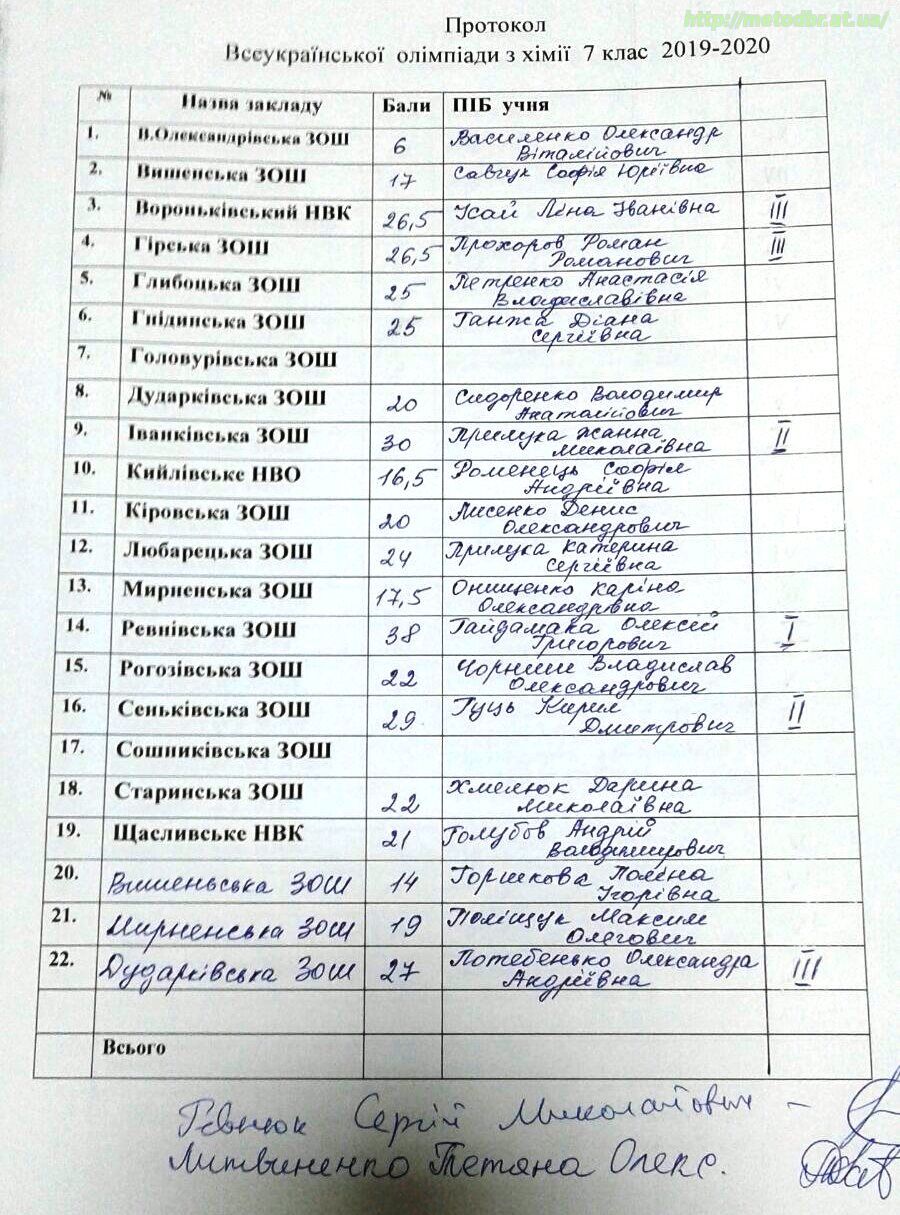 http://metodbr.at.ua/
Протокол
Всеукраїнської олімпіади з хімії 7 клас 2019-2020
№ Назва закладу Бали ПІБ учня
1. В.Олександрівська ЗОШ 6 Василенко Олександр
Віталійович
2. Вишенська ЗОШ 17 Савчук Софія Юріївна
3. Вороньківський НВК 26,5 Усай Лєна Іванівна III
4. Гірська ЗОШ 26,5 Прохоров Роман III
Романович
5. Глибоцька ЗОШ 25 Петренко Анастасія
Владиславівна
6. Гнідинська ЗОШ 25 Ганжа Діана
Сергіївна
7. Головурівська ЗОШ
8. Дударківська ЗОШ 20 Сидоренко Володимир
Анатолійович
9. Іванківська ЗОШ 30 Прилука Жанна II
Миколаївна
10. Кийлівське НВО 16,5 Роменець Софія
Андріївна
11. Кіровська ЗОШ 20 Лисенко Денис
Олександрович
12. Любарецька ЗОШ 24 Прилука Катерина
Сергіївна
13. Мирненська ЗОШ 17,5 Онищенко Каріна
Олександрівна
14. Ревнівська ЗОШ 38 Гайдамака Олексій I
Григорович
15. Рогозівська ЗОШ 22 Чорниш Владислав
Олександрович
16. Сеньківська ЗОШ 29 Гуць Кирил II
Дмитрович
17. Сошниківська ЗОШ
18. Старинська ЗОШ 22 Хмелюк Дарина
Миколаївна
19. Щасливське НВК 21 Голубов Андрій
Володимирович
20. Вишеньська ЗОШ 14 Горшкова Поліна
Ігорівна
21. Мирненська ЗОШ 19 Поліщук Максим
Олегович
22. Дударківська ЗОШ 27 Потебенько Олександра III
Андріївна
Всього
Сергій Миколайович –
Литвиненко Тетяна Олекс.